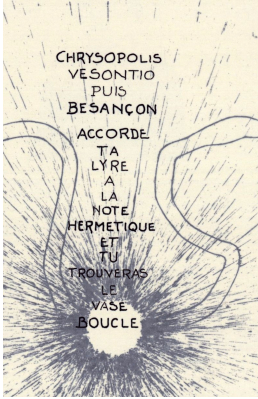 CHRYSOPOLIS
VESONTIO
PUIS
BESANÇON
ACCORDE
TA
LYRE
A
LA
NOTE
HERMETIQUE
ET
TU
TROUVERAS
LE
VASE
BOUCLE